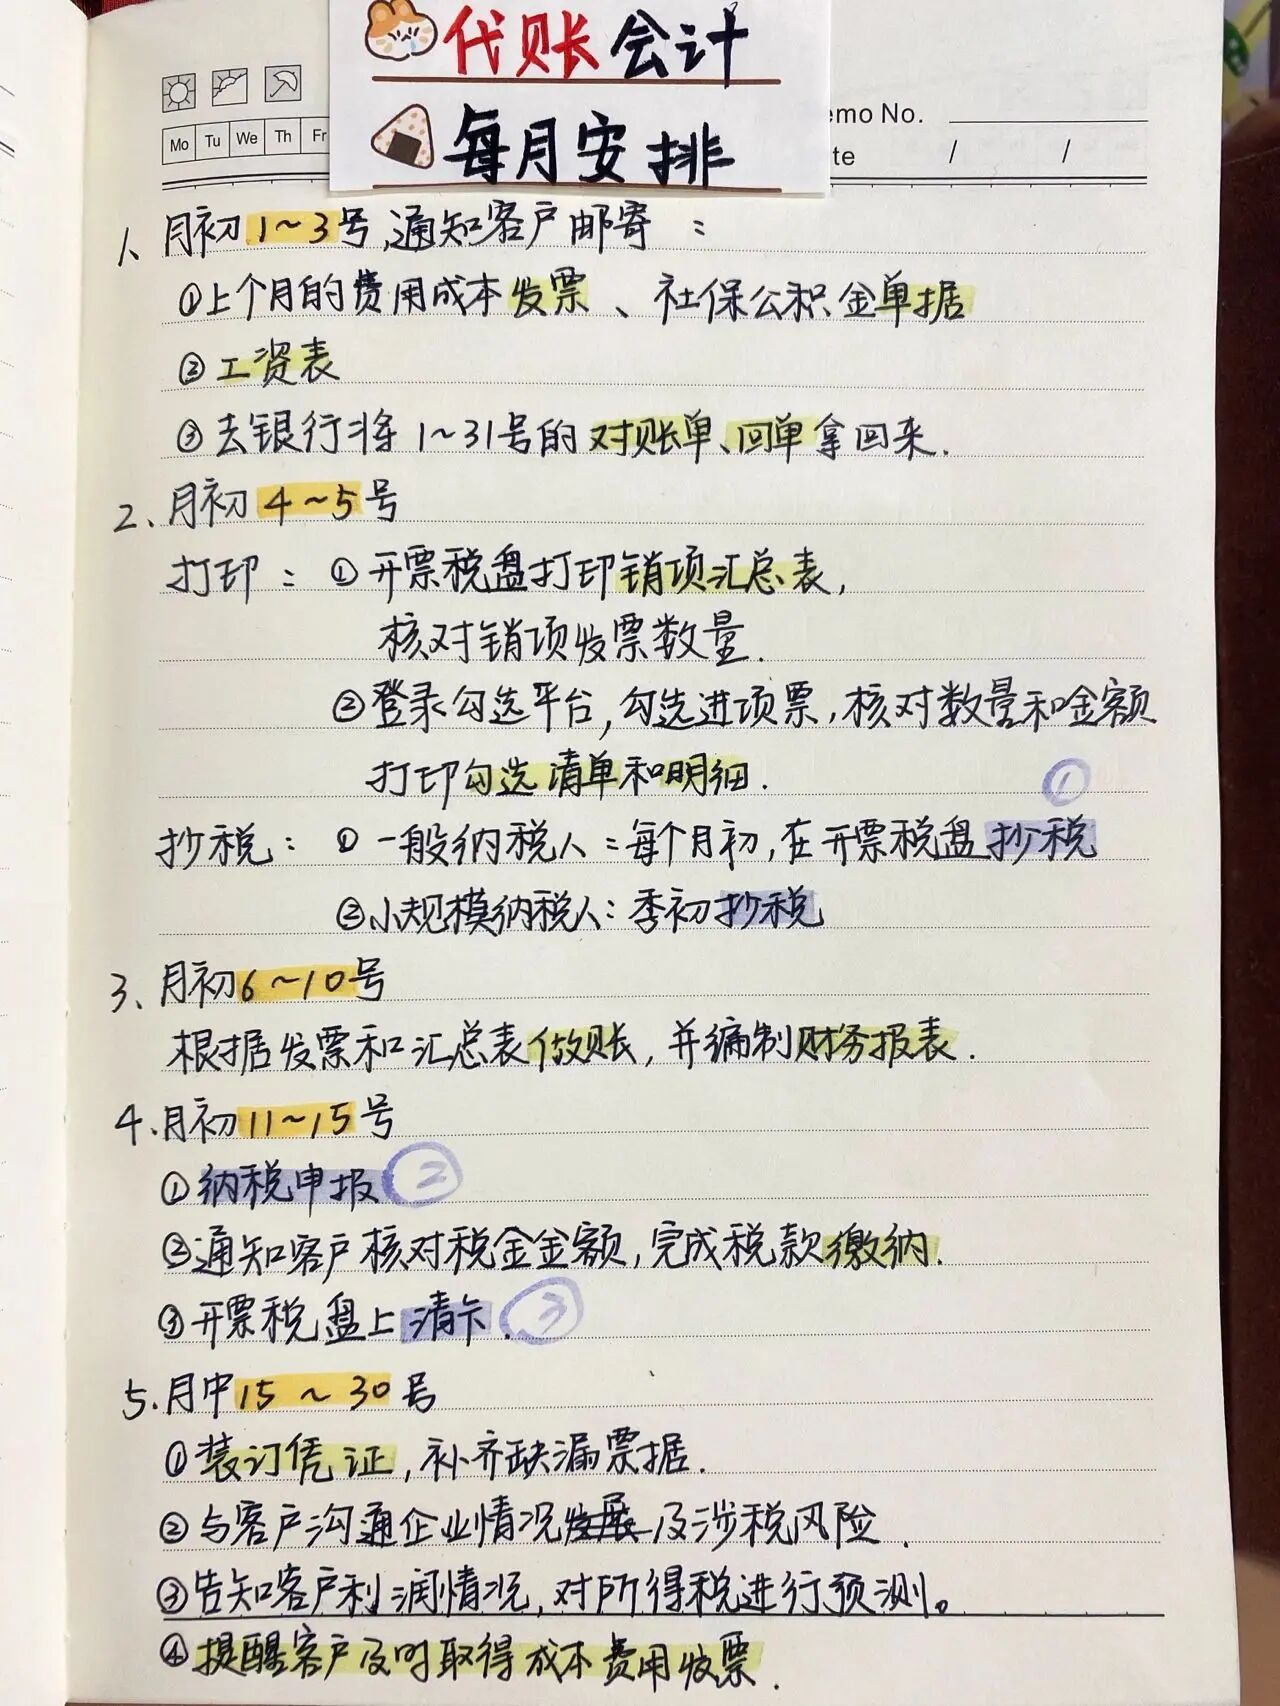 代账会计
每月安排
Mo Tu We Th Fr
emo No.
te / /
1、月初1~3号,通知客户邮寄：
①上个月的费用成本发票、社保公积金单据
②工资表
③去银行将1~31号的对账单、回单拿回来.
2、月初4~5号
打印：①开票税盘打印销项汇总表,
核对销项发票数量.
②登录勾选平台,勾选进项票,核对数量和金额
打印勾选清单和明细.
①
抄税：①一般纳税人：每个月初,在开票税盘抄税
②小规模纳税人：季初抄税
3、月初6~10号
根据发票和汇总表做账,并编制财务报表.
4.月初11~15号
①纳税申报②
②通知客户核对税金金额,完成税款缴纳.
③开票税盘上清卡.③
5.月中15~30号
①装订凭证,补齐缺漏票据.
②与客户沟通企业情况发展及涉税风险.
③告知客户利润情况,对所得税进行预测。
④提醒客户及时取得成本费用发票.